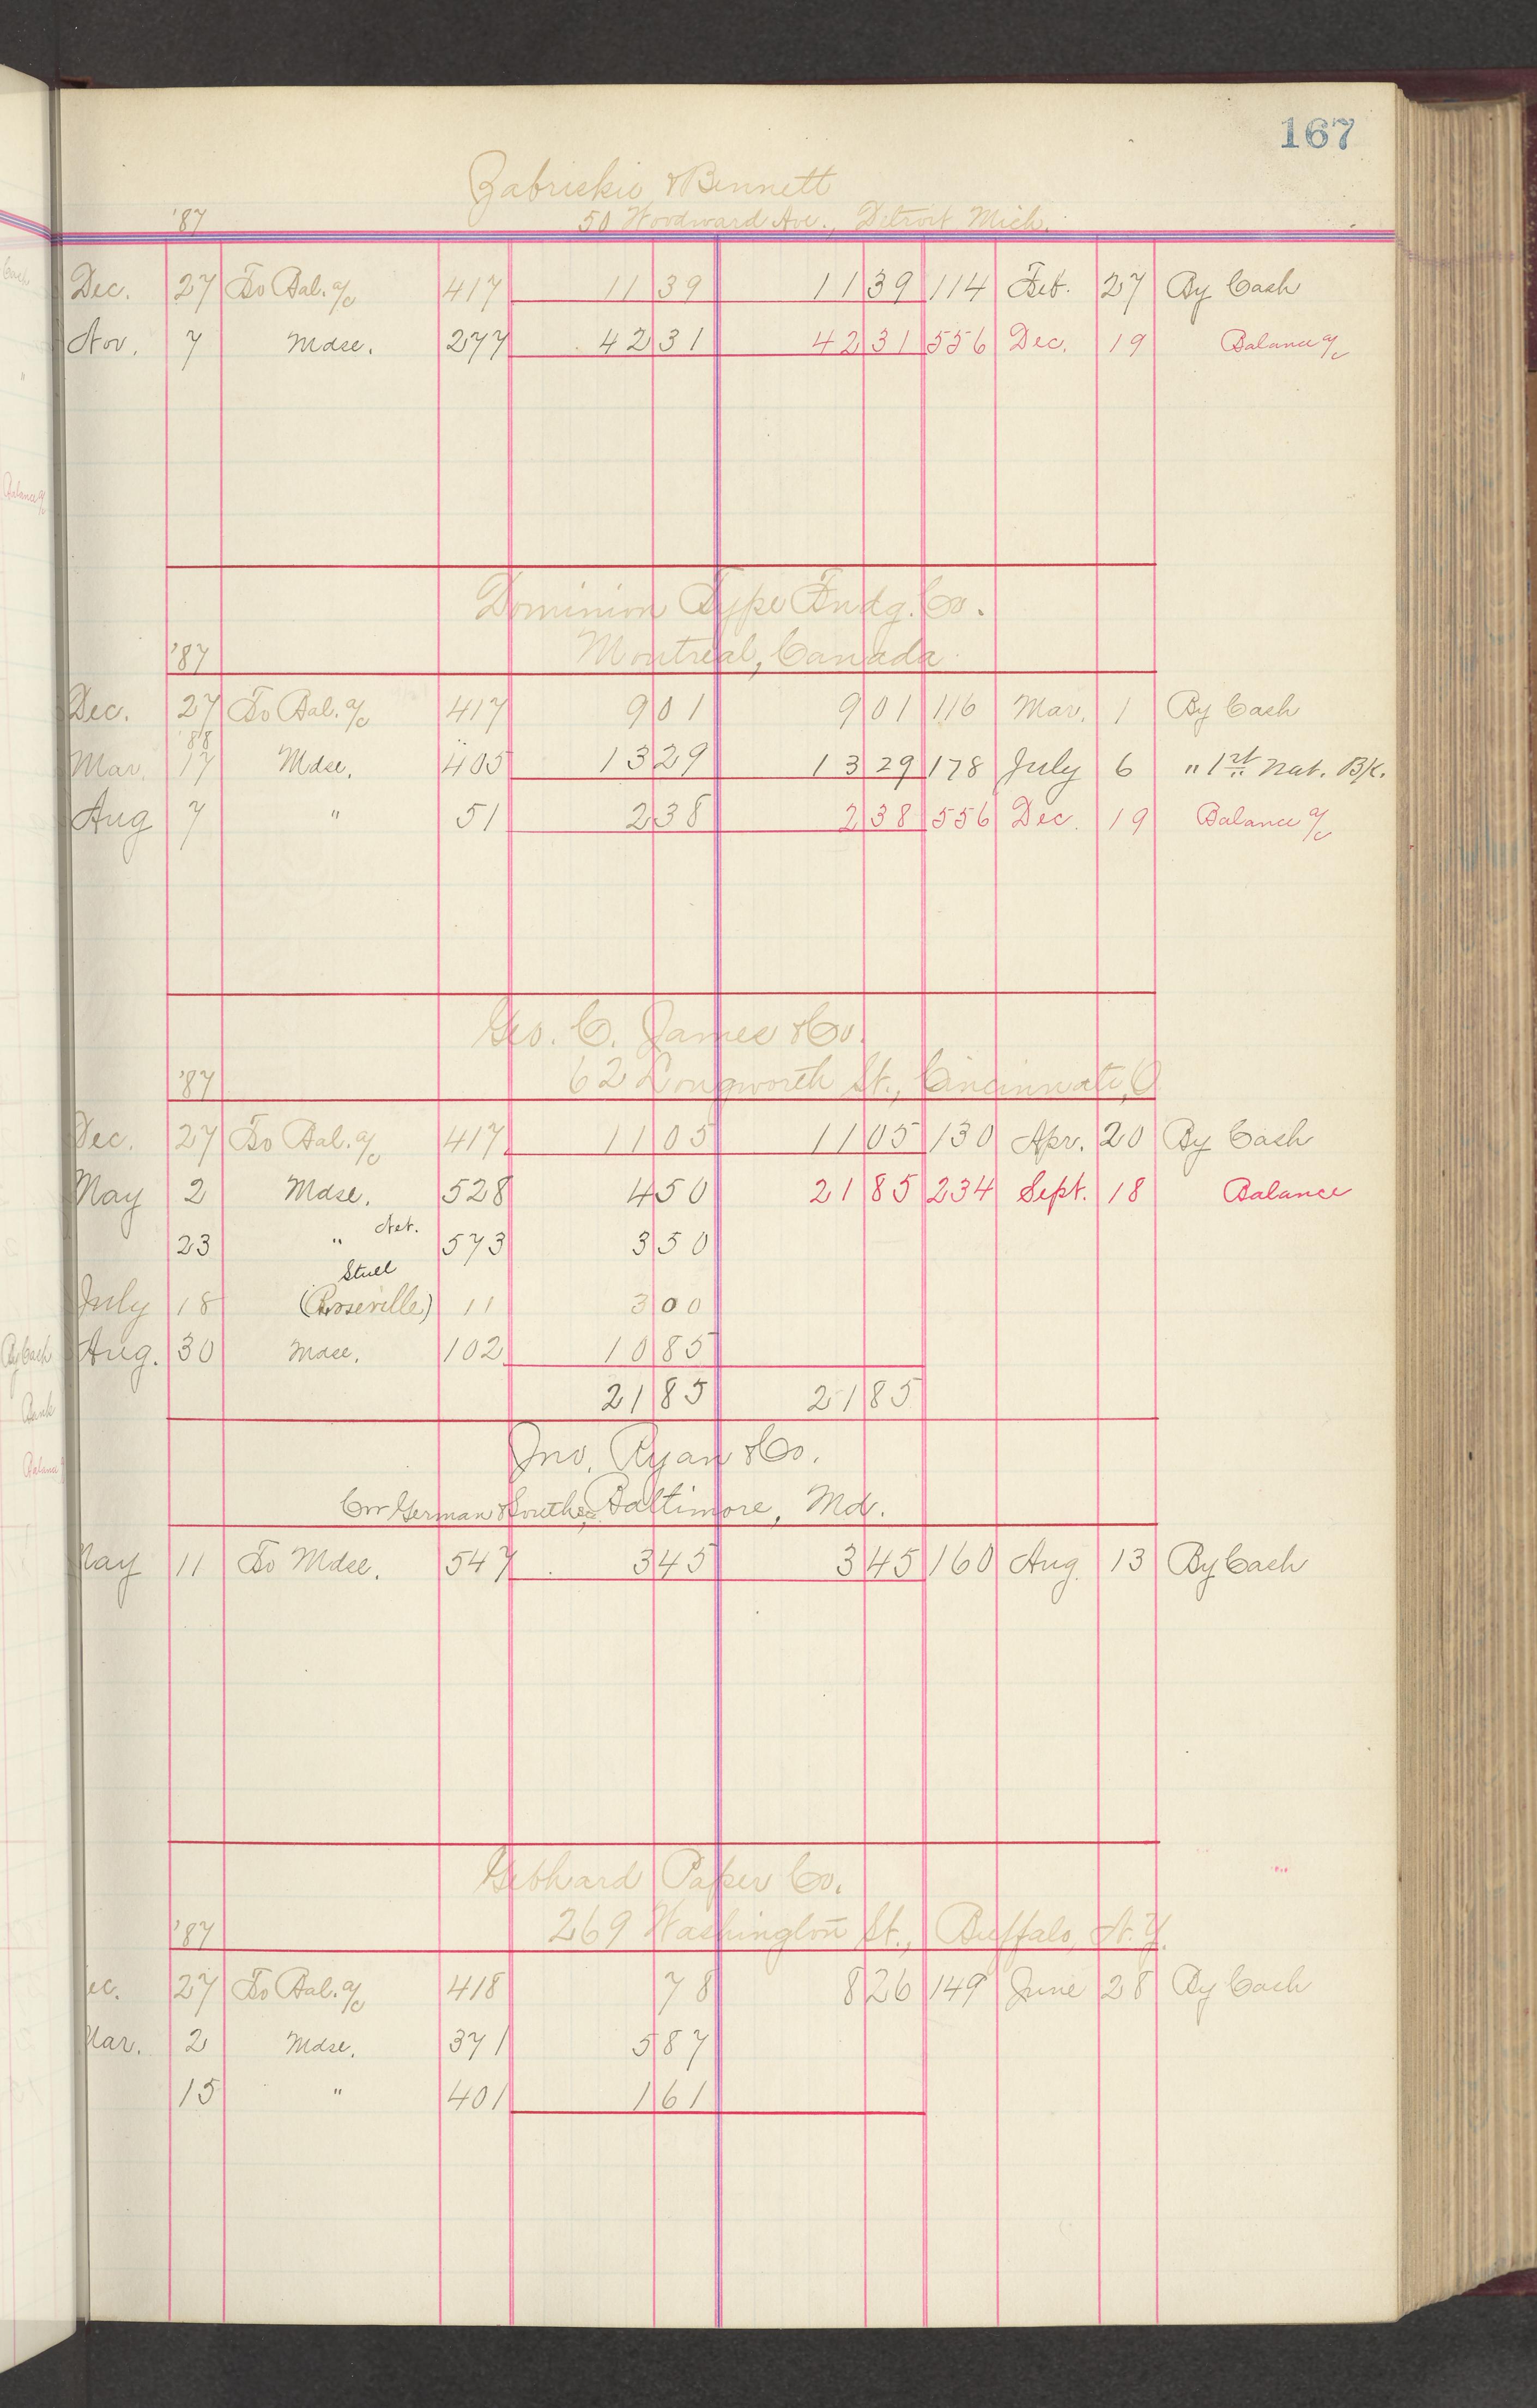 167
Zabriskie & Bennett
'87 50 Woodward Ave., Detroit Mich.
Dec. 27 To Bal. a/c 417 11 39 11 39 114 Feb. 27 By Cash
Nov. 7 Mdse. 277 42 31 42 31 556 Dec. 19 Balance a/c
Dominion Type Fndg. Co.
'87 Montreal, Canada
Dec. 27 To Bal. a/c 417 9 01 9 01 116 Mar. 1 By Cash
'88
Mar. 17 Mdse. 405 13 29 13 29 178 July 6 " 1st Nat. Bk.
Aug 7 " 51 2 38 2 38 556 Dec. 19 Balance a/c
Geo. C. James & Co.
'87 62 Longworth St., Cincinnati, O
Dec. 27 To Bal. a/c 417 11 05 11 05 130 Apr. 20 By Cash
May 2 Mdse. 528 4 50 21 85 234 Sept. 18 Balance
23 " Net. 573 3 50
Stull
July 18 (Roseville) 11 3 00
Aug. 30 Mdse. 102 10 85
21 85 21 85
Jno. Ryan & Co.
Cor German & South Sts Baltimore, Md.
May 11 To Mdse. 547 3 45 3 45 160 Aug. 13 By Cash
Gebhard Paper Co.
'87 269 Washington St., Buffalo, N.Y.
ec. 27 To Bal. a/c 418 78 8 26 149 June 28 By Cash
Mar. 2 Mdse. 371 5 87
15 " 401 1 61